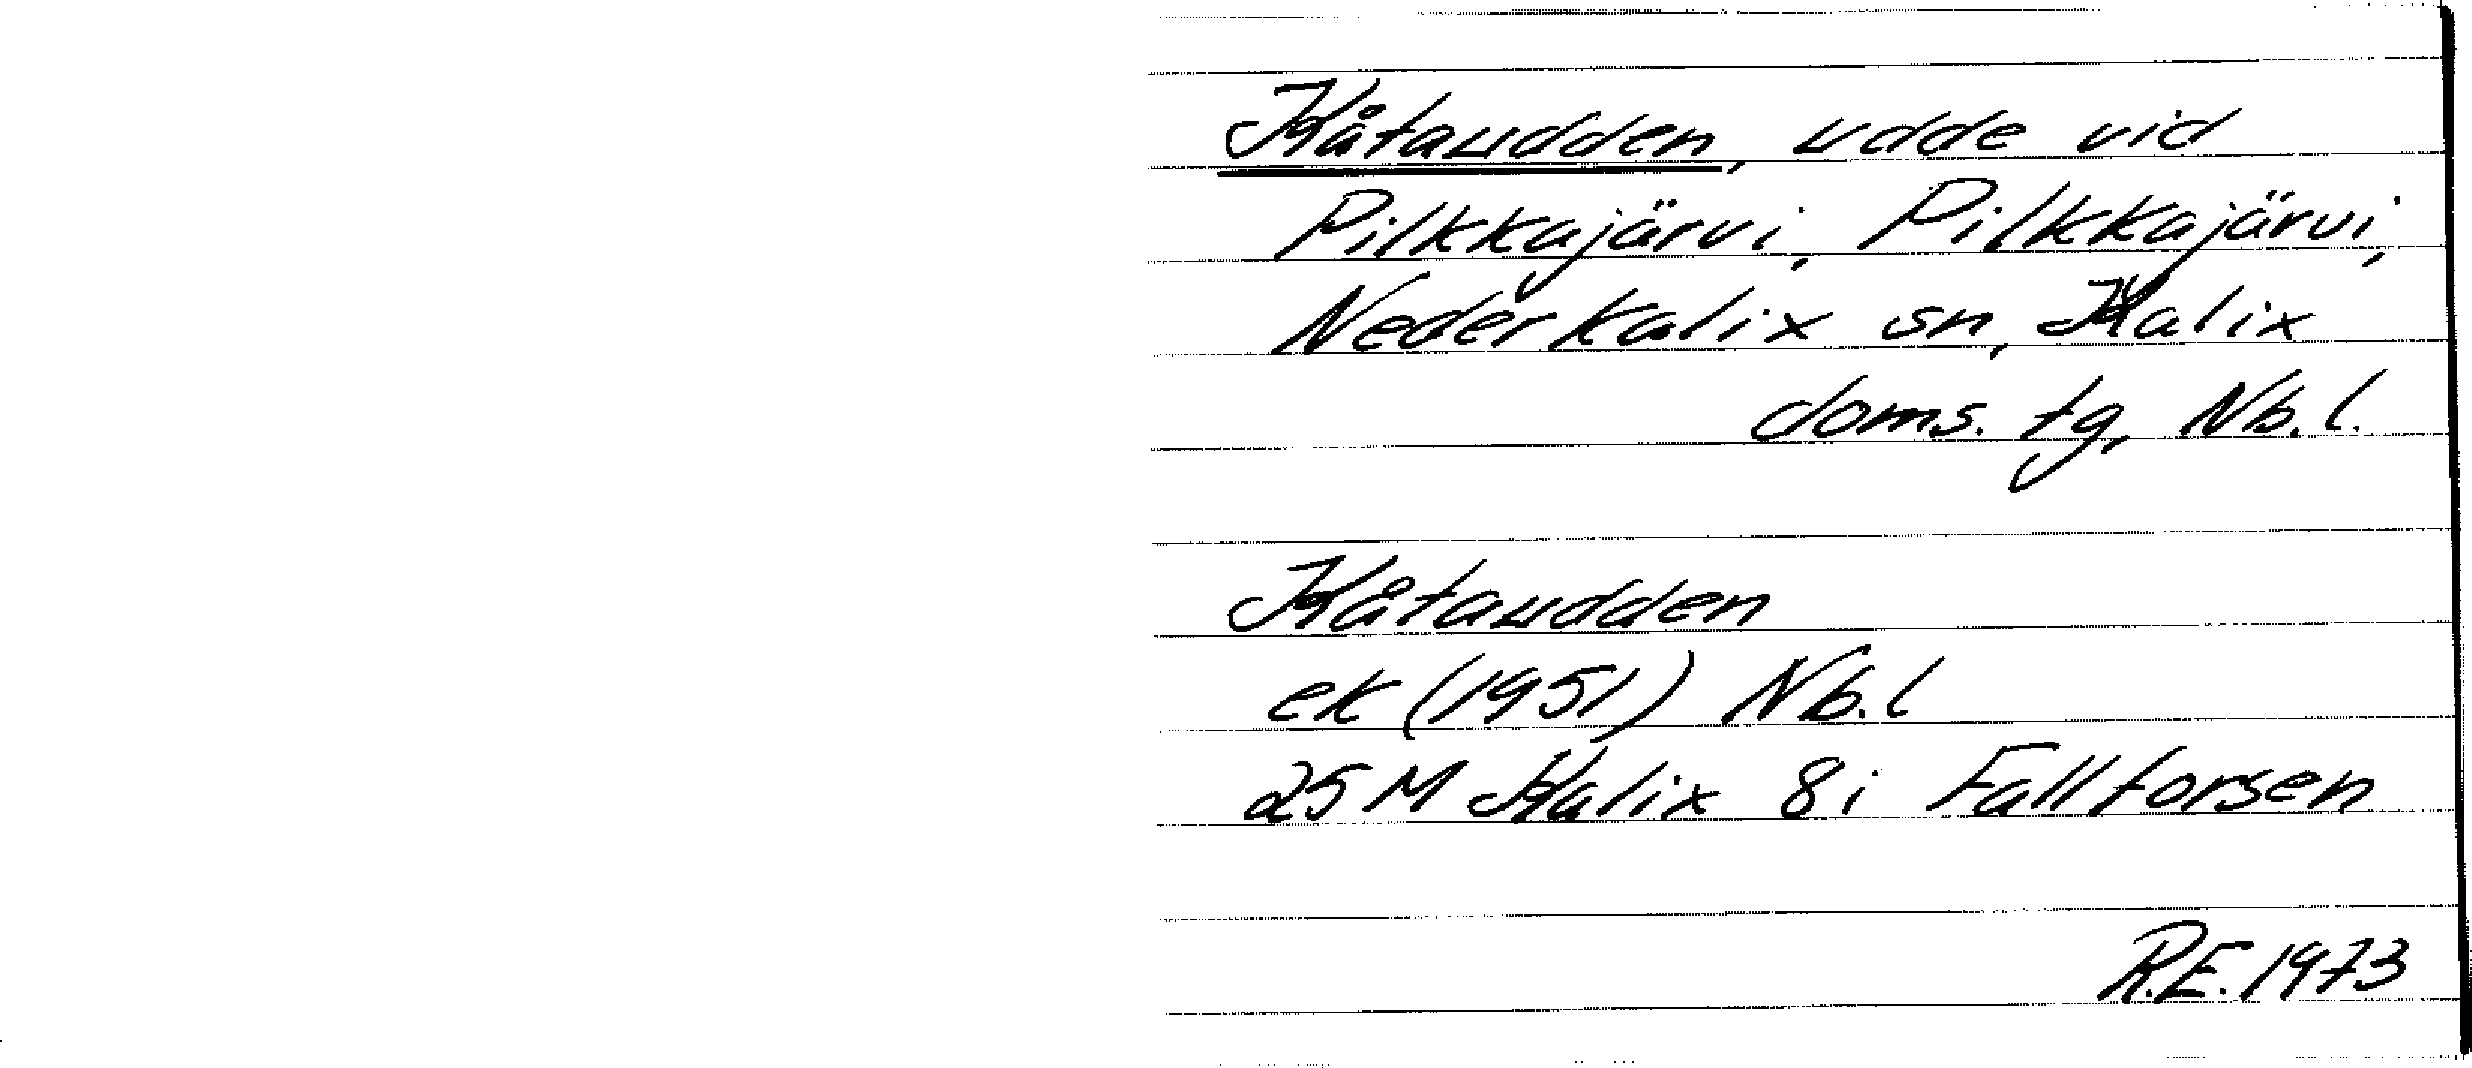 Kåtaudden, udde vid
Pilkkajärvi, Pilkkajärvi,
Nederkalix sn, Kalix
doms. tg, Nb. l.
Kåtaudden
ek (1951) Nb. l
25 M Kalix 8i Fallforsen
R.E. 1973